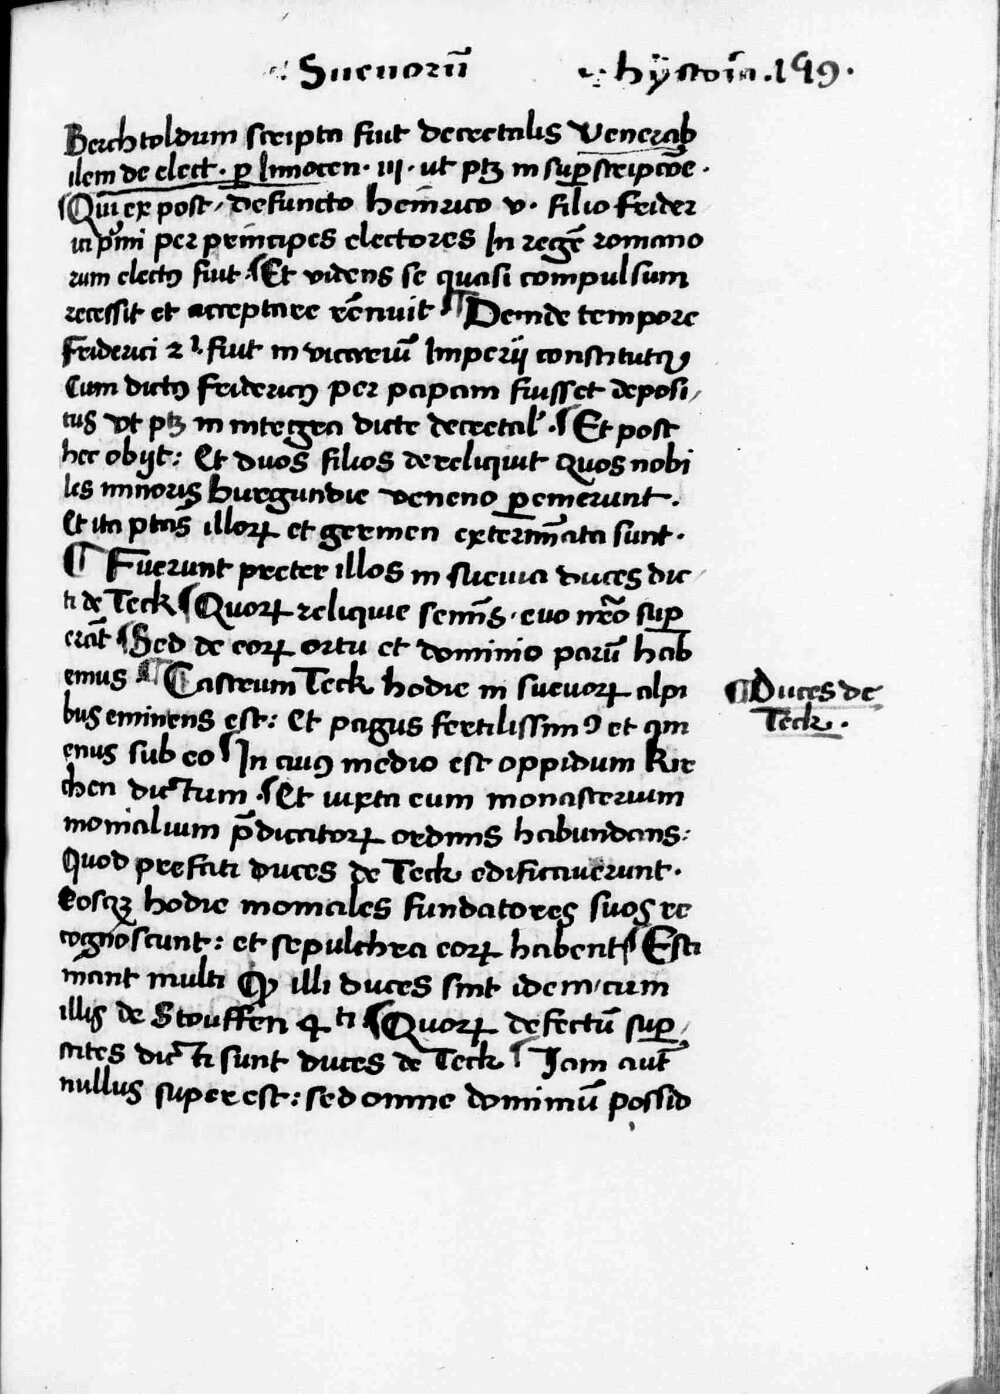 Sueuorū hÿstoria .199.
Berchtoldum scripta fuit decretalis Venerab
ilem de elect. ꝑ Innocen. iii. ut ptꝫ in suꝑscripcōe.
Qui ex post defuncto heinrico v. filio frider
ici pͥmi per principes electores In regē romano
rum electꝰ fuit. Et videns se quasi compulsum
recessit et acceptare rēnuit Deinde tempore
friderici 2ⁱ. fuit in vicariū Imperii constitutꝰ
Cum dictꝰ fridericꝰ per papam fuisset deposi/
tus vt ptꝫ in integra dicte decretal'. Et post
hec obijt: Et duos filios dereliquit Quos nobi
les minoris burgundie veneno ꝑemerunt.
Et ita ptās illorꝝ et germen extermīata sunt.
¶ Fuerunt preter illos in sueuia duces dic/
ti de Teck Quorꝝ reliquie semīs. euo nr̄o suꝑ
erāt Sed de eorꝝ ortu et dominio parū hab
emus ¶ Castrum Teck hodie in sueuorꝝ alpi
bus eminens est: Et pagus fertilissimꝰ et am
enus sub eo In cuiꝰ medio est oppidum Kir
chen dictum. Et iuxta eum monasterium
monialium p̄dicatorꝝ ordinis habundans:
Quod prefati duces de Teck edificauerunt.
Eosqꝫ hodie moniales fundatores suos re
cognoscunt: et sepulchra eorꝝ habent Esti
mant multi ꝙ illi duces sint idem cum
illis de Stouffen 4ti Quorꝝ defectū suꝑ/
stites dicti sunt duces de Teck Iam aut̄
nullus superest: sed omne dominiū possid
¶ Duces de
Teck.